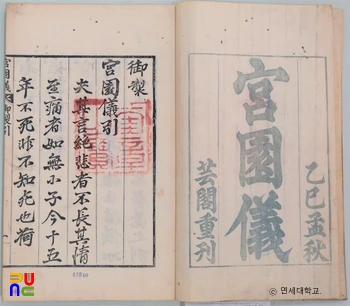 乙巳孟秋
宮園儀
芸閣重刊
御製
宮園儀引
夫其言絶悲者不長其情
至痛者如無小子今十五
年不死非不知死也荷
宮園儀
御製引
© 연세대학교